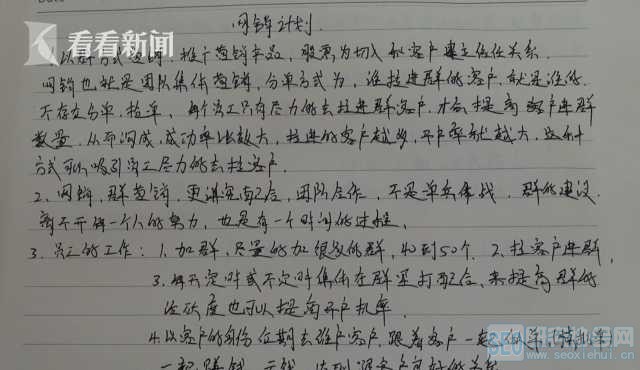 看看新闻
网销计划
1. 以群方式营销,推广营销产品,股票为切入和客户建立信任关系.
网销也就是团队集体营销,分单方式为,谁拉进群的客户就是谁的.
不存在分单,抢单,每个员工只有尽力的去拉进群客户,才会提高客户进群
数量.从而洞成,成功率比较大,拉进的客户越多,开户率就越大,这种
方式可以吸引员工尽力的去拉客户.
2、网销,群营销,更讲究配合,团队合作,不是单兵作战,群的建设
离不开每一个人的努力,也是有一个时间的过程,
3、员工的工作:1.加群,尽量的加很多的群,40到50个.2、拉客户进群,
3.每天定时或不定时集体在群里打配合,来提高群的
活跃度也可以提高开户机率.
4.以客户的身份 去维护客户,跟着客户一起
一起赚钱
www.seoxiehui.cn